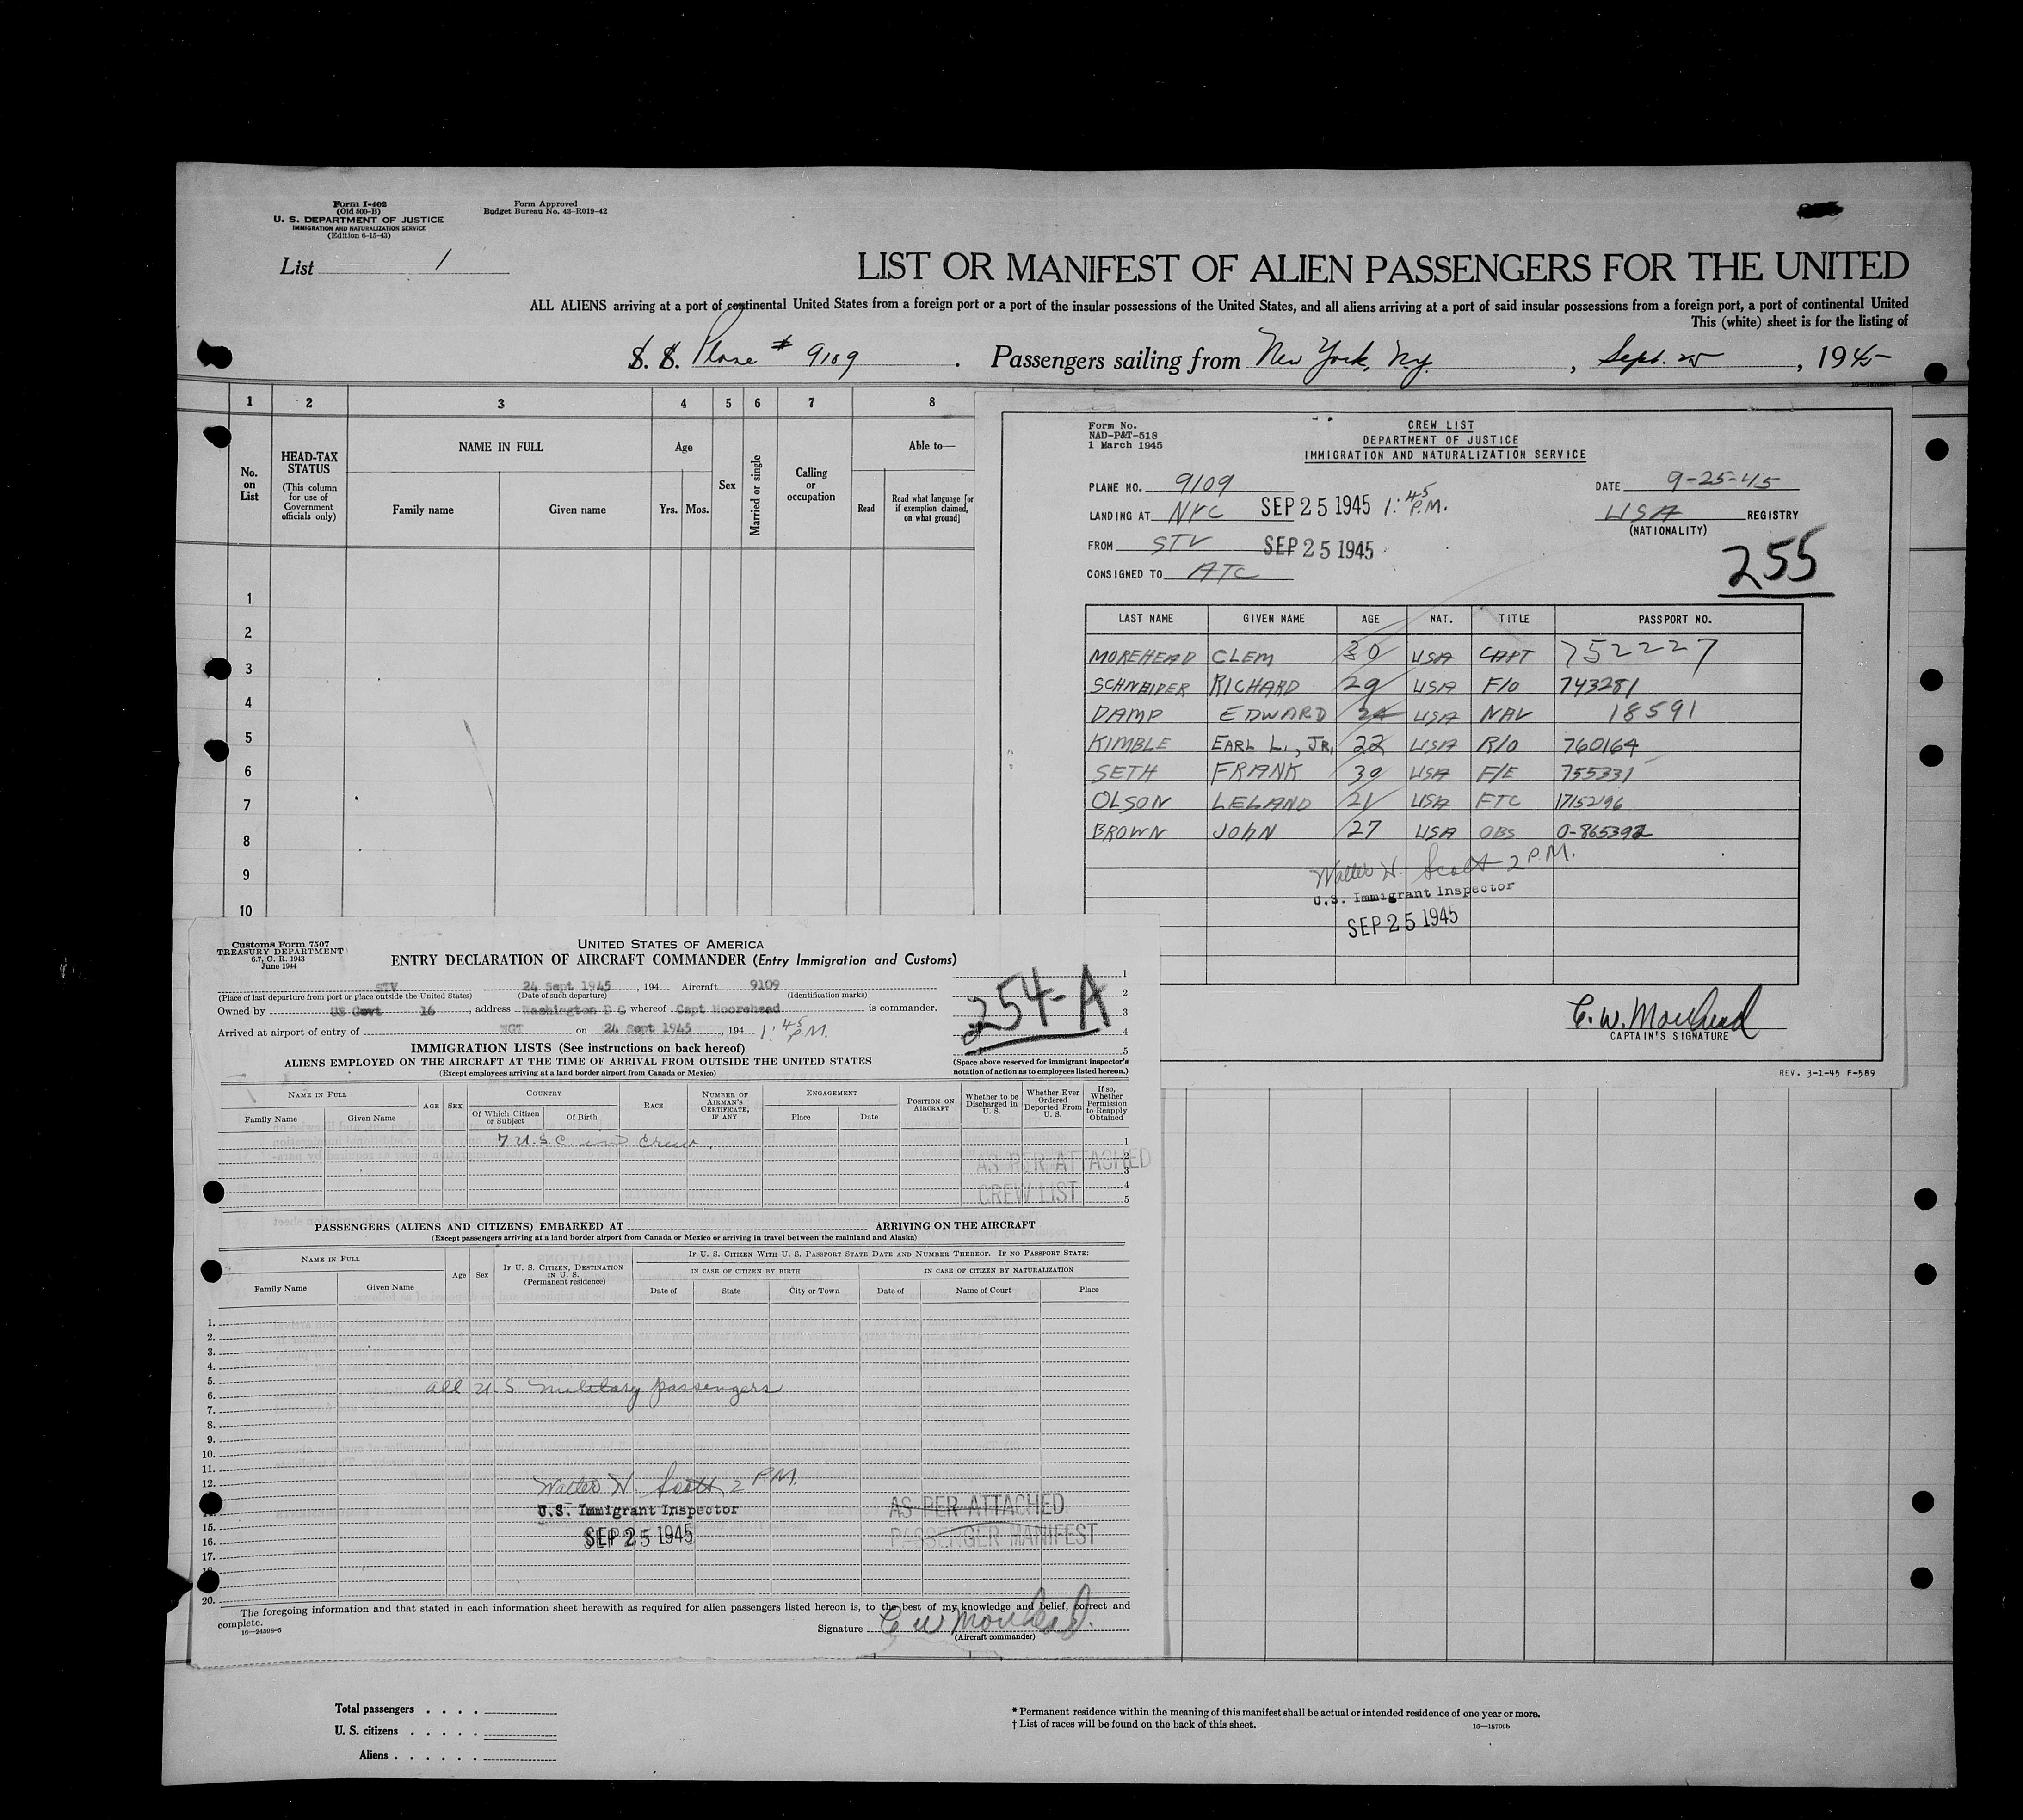 Form I-402
(Old 500-B)
U. S. DEPARTMENT OF JUSTICE
IMMIGRATION AND NATURALIZATION SERVICE
(Edition 6-15-43)
Form Approved
Budget Bureau No. 43-R019-42
List 1
LIST OR MANIFEST OF ALIEN PASSENGERS FOR THE UNITED
ALL ALIENS arriving at a port of continental United States from a foreign port or a port of the insular possessions of the United States, and all aliens arriving at a port of said insular possessions from a foreign port, a port of continental United
This (white) sheet is for the listing of
S. S. Plane # 9109 . Passengers sailing from New York, N.Y. , Sept. 25 , 1945
1 2 3 4 5 6 7 8
No. on List
HEAD-TAX STATUS
(This column for use of Government officials only)
NAME IN FULL
Family name Given name
Age
Yrs. Mos.
Sex
Married or single
Calling or occupation
Able to—
Read
Read what language [or if exemption claimed, on what ground]
1
2
3
4
5
6
7
8
9
10
Form No.
NAD-P&T-518
1 March 1945
CREW LIST
DEPARTMENT OF JUSTICE
IMMIGRATION AND NATURALIZATION SERVICE
PLANE NO. 9109
DATE 9-25-45
LANDING AT NYC SEP 25 1945 1:45 P.M.
USA REGISTRY
(NATIONALITY)
FROM STV SEP 25 1945
CONSIGNED TO ATC
255
LAST NAME GIVEN NAME AGE NAT. TITLE PASSPORT NO.
MOREHEAD CLEM 30 USA CAPT 752227
SCHNEIDER RICHARD 29 USA F/O 743281
DAMP EDWARD 24 USA NAV 18591
KIMBLE EARL L., JR, 22 USA R/O 760164
SETH FRANK 30 USA F/E 755331
OLSON LELAND 21 USA FTC 17152196
BROWN JOHN 27 USA OBS 0-865392
Walter W. Scott 2 P.M.
U.S. Immigrant Inspector
SEP 25 1945
C. W. Morehead
CAPTAIN'S SIGNATURE
REV. 3-1-45 F-589
Customs Form 7507
TREASURY DEPARTMENT
6.7, C. R. 1943
June 1944
UNITED STATES OF AMERICA
ENTRY DECLARATION OF AIRCRAFT COMMANDER (Entry Immigration and Customs)
STV 24 Sept 1945 , 194 Aircraft 9109
(Place of last departure from port or place outside the United States) (Date of such departure) (Identification marks)
Owned by US Govt 16 , address Washington D C whereof Capt Moorehead is commander.
Arrived at airport of entry of on 24 Sept 1945 , 194 1:45 P.M.
254-A
1
2
3
4
5
(Space above reserved for immigrant inspector's notation of action as to employees listed hereon.)
IMMIGRATION LISTS (See instructions on back hereof)
ALIENS EMPLOYED ON THE AIRCRAFT AT THE TIME OF ARRIVAL FROM OUTSIDE THE UNITED STATES
(Except employees arriving at a land border airport from Canada or Mexico)
NAME IN FULL
Family Name Given Name
AGE SEX
COUNTRY
Of Which Citizen or Subject Of Birth
RACE
NUMBER OF AIRMAN'S CERTIFICATE, IF ANY
ENGAGEMENT
Place Date
POSITION ON AIRCRAFT
Whether to be Discharged in U. S.
Whether Ever Ordered Deported From U. S.
If so, Whether Permission to Reapply Obtained
7 U.S.C. in Crew.
1
2
3
4
5
AS PER ATTACHED
CREW LIST
PASSENGERS (ALIENS AND CITIZENS) EMBARKED AT ARRIVING ON THE AIRCRAFT
(Except passengers arriving at a land border airport from Canada or Mexico or arriving in travel between the mainland and Alaska)
NAME IN FULL
Family Name Given Name
Age Sex
IF U. S. CITIZEN, DESTINATION IN U. S.
(Permanent residence)
IF U. S. CITIZEN WITH U. S. PASSPORT STATE DATE AND NUMBER THEREOF. IF NO PASSPORT STATE:
IN CASE OF CITIZEN BY BIRTH IN CASE OF CITIZEN BY NATURALIZATION
Date of State City or Town Date of Name of Court Place
1.
2.
3.
4.
5.
6.
all U.S. military passengers
7.
8.
9.
10.
11.
12.
Walter W. Scott 2 P.M.
U.S. Immigrant Inspector
SEP 25 1945
AS PER ATTACHED
PASSENGER MANIFEST
15.
16.
17.
20.
The foregoing information and that stated in each information sheet herewith as required for alien passengers listed hereon is, to the best of my knowledge and belief, correct and
complete.
16—24598-5
Signature C W Morehead.
(Aircraft commander)
Total passengers . . . .
U. S. citizens . . . . .
Aliens . . . . . .
* Permanent residence within the meaning of this manifest shall be actual or intended residence of one year or more.
† List of races will be found on the back of this sheet.
16—18706b